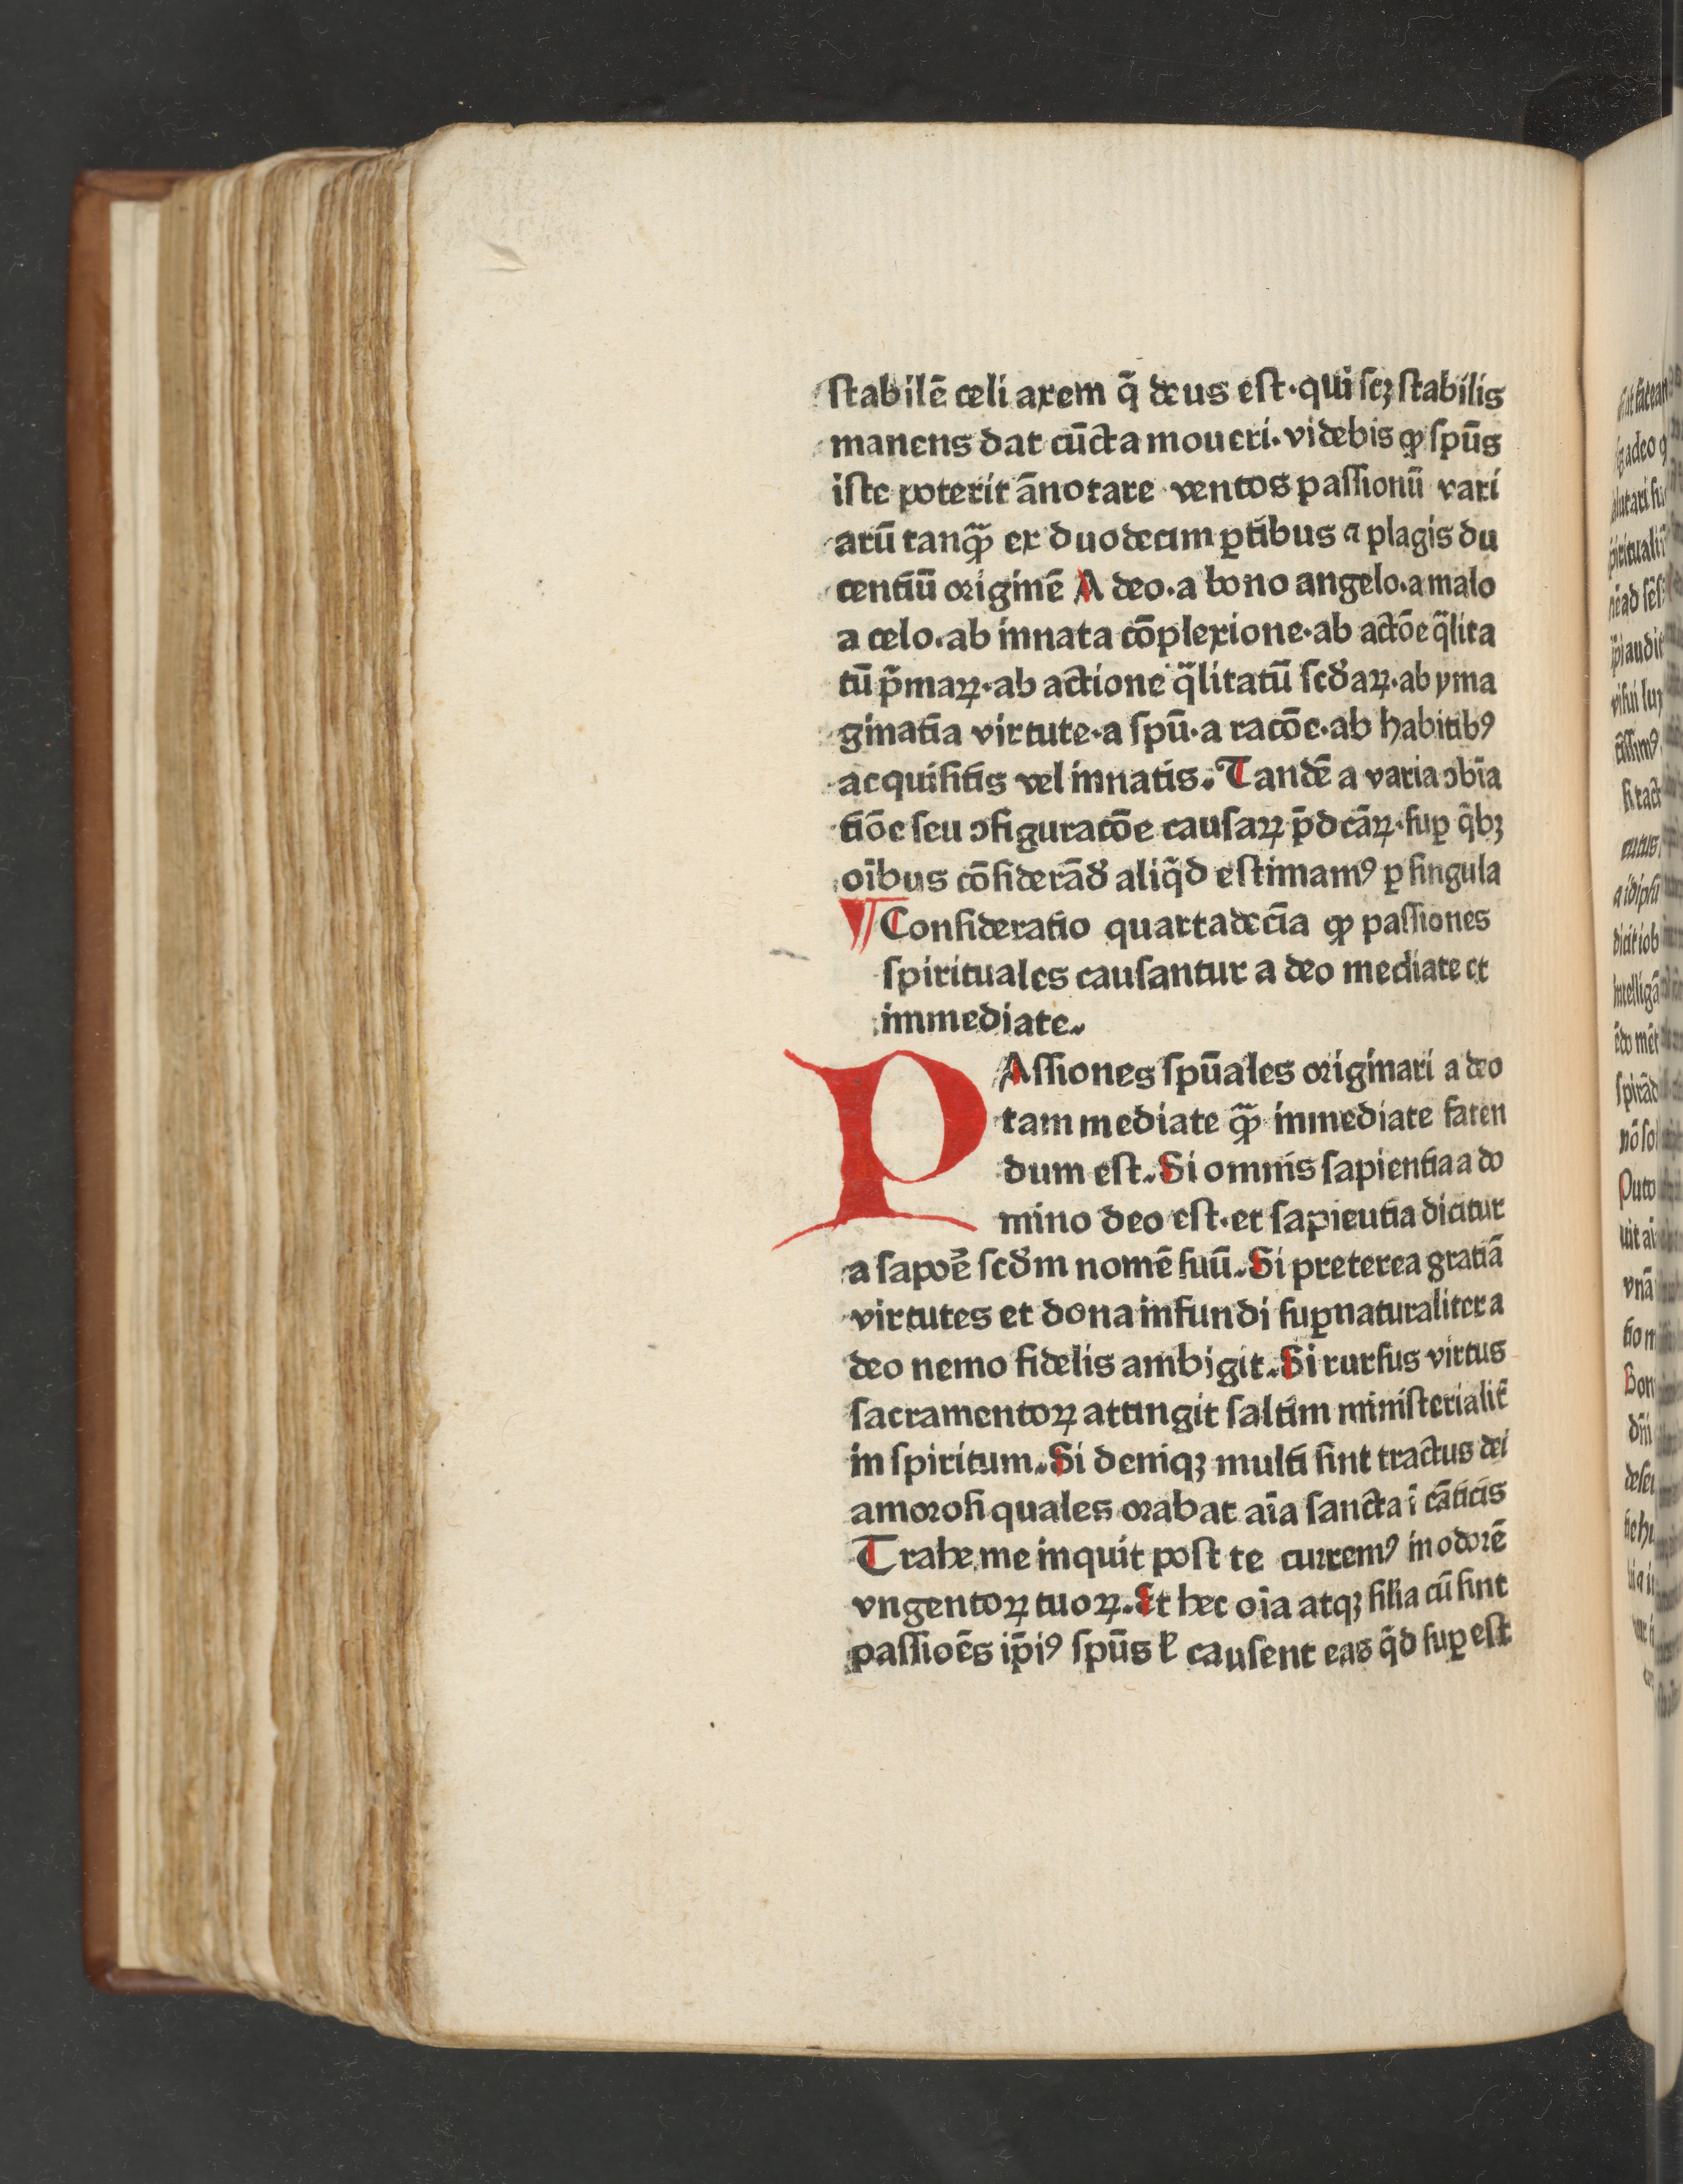 ſtabilē celi axem q̄ deus eſt·qui ſcꝫ ſtabilis
manens dat cūcta moueri·videbis ꝙ ſpūs
iſte poterit ānotare ventos paſſionū vari
arū tanq̄ꝫ ex duodecim ꝑtibus ⁊ plagis du
centiū originē A deo·a bono angelo·a malo
a celo·ab innata cōplexione·ab actōe q̄lita
tū p̄maꝝ·ab actione q̄litatū ſcd̄aꝝ·ab yma
ginatīa virtute·a ſpū·a racōe·ab habitibꝰ
acquiſitis vel innatis. Tandē a varia ↄbīa
tiōe ſeu ↄfiguracōe cauſaꝝ p̄dcāꝝ·ſuꝑ q̄bꝫ
oībus cōſiderād̄ aliq̄d eſtimamꝰ ꝑ ſingula
¶ Conſideratio quartadecīa ꝙ paſſiones
ſpirituales cauſantur a deo mediate et
immediate.
PAſſiones ſpūales originari a deo
tam mediate q̄ꝫ immediate faten
dum eſt. Si omnis ſapientia a do
mino deo eſt·et ſapieutia dicitur
a ſapoꝛē ſcd̄m nomē ſuū. Si preterea gratiā
virtutes et dona infundi ſuꝑnaturaliter a
deo nemo fidelis ambigit. Si rurſus virtus
ſacramentoꝝ attingit ſaltim miniſterialit̄
in ſpiritum. Si deniqꝫ multi ſint tractus dei
amoꝛoſi quales oꝛabat aīa ſancta ī cāticis
Trahe me inquit poſt te curremꝰ in odoꝛē
vngentoꝝ tuoꝝ. Et hec oīa atqꝫ ſilīa cū ſint
paſſioēs ip̄iꝰ ſpūs ꝉ cauſent eas q̄d ſuꝑ eſt